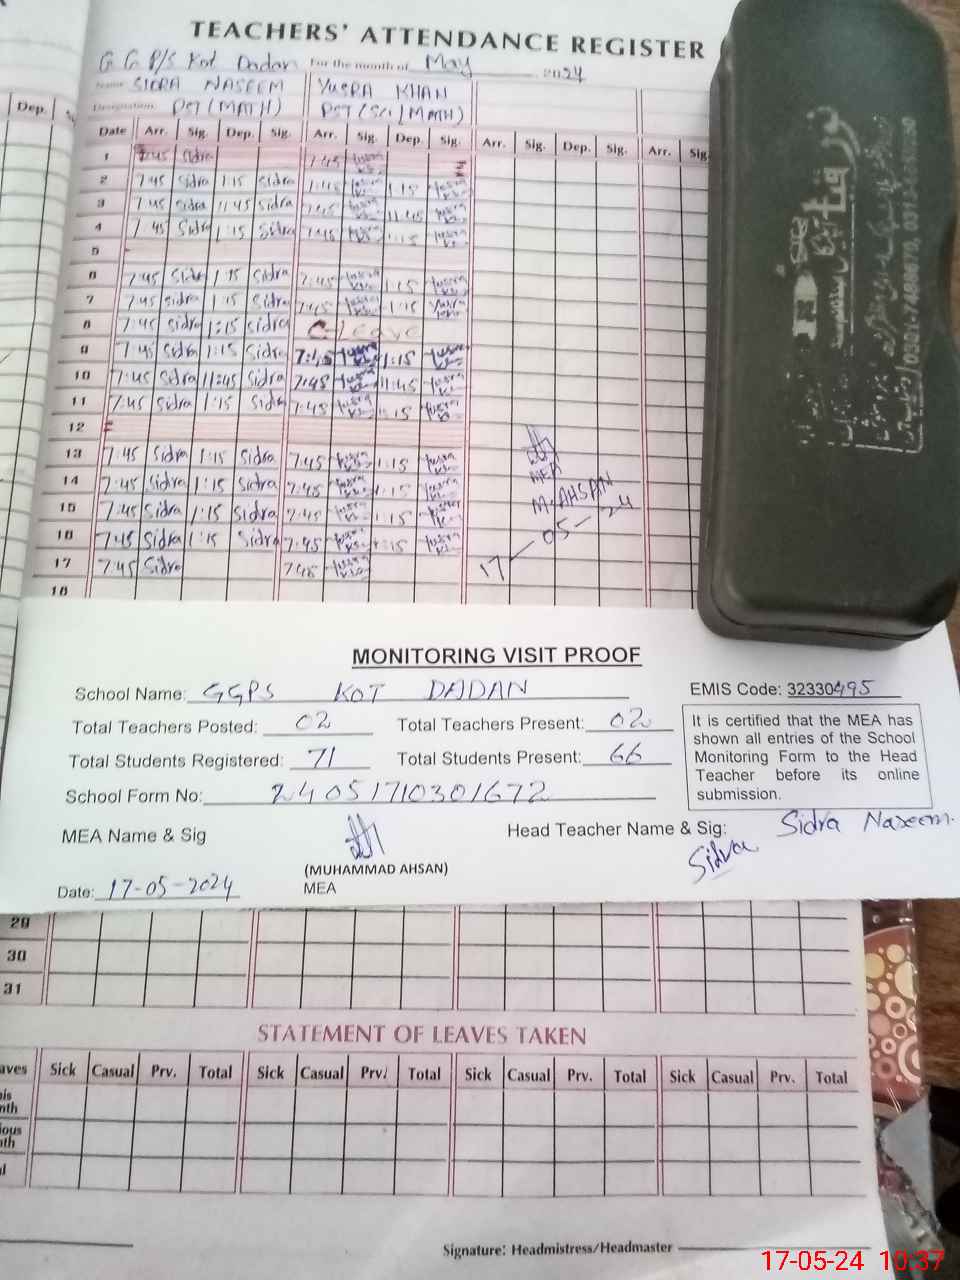 TEACHERS' ATTENDANCE REGISTER
G G P/S Kot Dadan For the month of May 2024
Name SIDRA NASEEM YUSRA KHAN
Designation PST (MATH) PST (Sci/MATH)
Dep.
Date Arr. Sig. Dep. Sig. Arr. Sig. Dep. Sig. Arr. Sig. Dep. Sig. Arr. Sig.
1 7:45 Sidra 7:45
2 7:45 Sidra 1:15 Sidra 7:45 1:15
3 7:45 Sidra 11:45 Sidra 7:45 11:45
4 7:45 Sidra 1:15 Sidra 7:45 1:15
5
6 7:45 Sidra 1:15 Sidra 7:45 Yusra 1:15 Yusra
7 7:45 Sidra 1:15 Sidra 7:45 1:15 Yusra
8 7:45 Sidra 1:15 Sidra C-Leave
9 7:45 Sidra 1:15 Sidra 7:45 Yusra 1:15 Yusra
10 7:45 Sidra 11:45 Sidra 7:45 Yusra 11:45 Yusra
11 7:45 Sidra 1:15 Sidra 7:45 Yusra 1:15 Yusra
12
13 7:45 Sidra 1:15 Sidra 7:45 Yusra 1:15 Yusra
14 7:45 Sidra 1:15 Sidra 7:45 Yusra 1:15 Yusra
15 7:45 Sidra 1:15 Sidra 7:45 Yusra 1:15
16 7:45 Sidra 1:15 Sidra 7:45 Yusra 1:15 Yusra
17 7:45 Sidra 7:45 Yusra
18
MEA
M. AHSAN
17-05-24
MONITORING VISIT PROOF
School Name: GGPS KOT DADAN EMIS Code: 32330495
Total Teachers Posted: 02 Total Teachers Present: 02
Total Students Registered: 71 Total Students Present: 66
It is certified that the MEA has
shown all entries of the School
Monitoring Form to the Head
Teacher before its online
submission.
School Form No: 24051710301672
MEA Name & Sig Head Teacher Name & Sig: Sidra Naseem.
Sidra
(MUHAMMAD AHSAN)
MEA
Date: 17-05-2024
29
30
31
STATEMENT OF LEAVES TAKEN
aves Sick Casual Prv. Total Sick Casual Prv. Total Sick Casual Prv. Total Sick Casual Prv. Total
his
nth
ious
nth
al
Signature: Headmistress/Headmaster
17-05-24 10:37